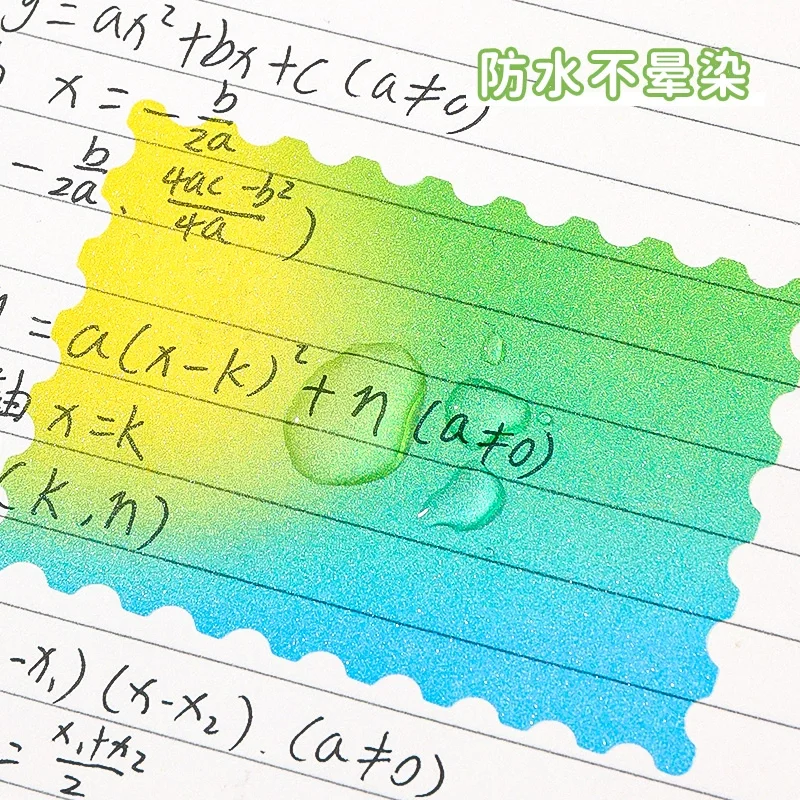 y=ax²+bx+c (a≠0)
防水不晕染
x=-b/2a
-b/2a、(4ac-b²)/4a)
=a(x-k)²+n (a≠0)
轴 x=k
(k,n)
-x₁)(x-x₂).(a≠0)
=(x₁+x₂)/2